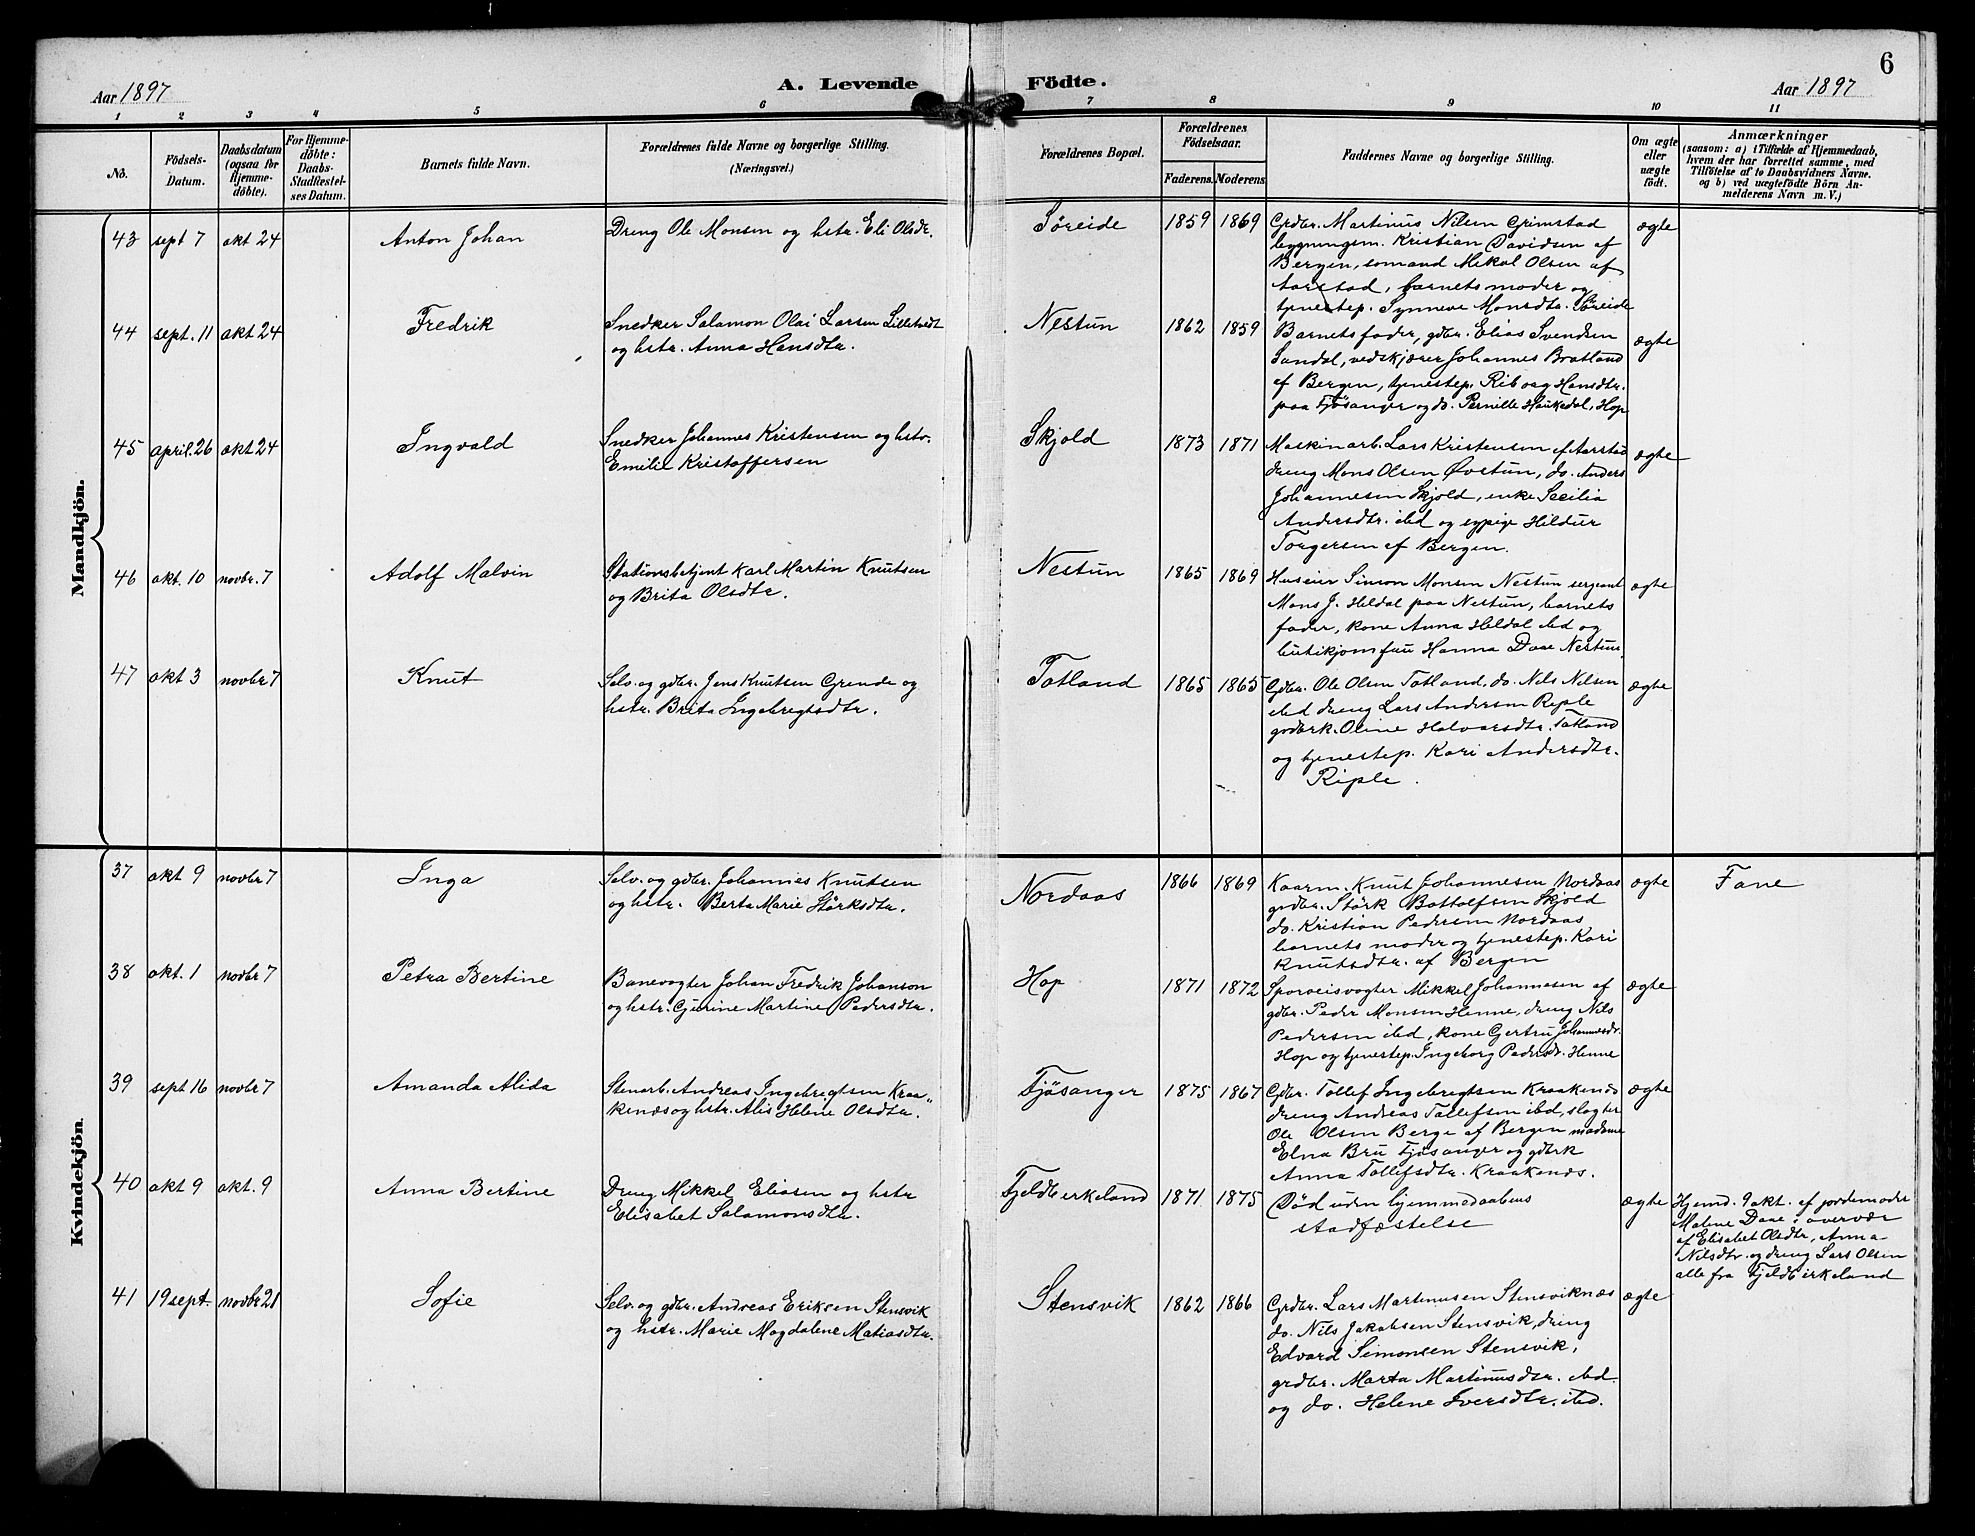 6
Aar 1897
A. Levende Födte.
Aar 1897
1 2 3 4 5 6 7 8 9 10 11
No.
Födsels-Datum.
Daabsdatum (ogsaa for Hjemme-döbte).
For Hjemme-döbte: Daabs-Stadfæstel-ses Datum.
Barnets fulde Navn.
Forældrenes fulde Navne og borgerlige Stilling.
(Næringsvei.)
Forældrenes Bopæl.
Forældrenes Födselsaar.
Faderens. Moderens.
Faddernes Navne og borgerlige Stilling.
Om ægte eller uægte födt.
Anmærkninger
(saasom: a) i Tilfælde af Hjemmedaab,
hvem der har forrettet samme, med
Tilföielse af to Daabsvidners Navne.
og b) ved uægtefödte Börn An-
melderens Navn m. V.)
Mandkjön.
43 sept 7 okt 24 Anton Johan
Dreng Ole Monsen og hstr. Eli Olsdr.
Søreide 1859 1869
Grdbr. Martinus Nilsen Grimstad
bygningsm. Kristian Davidsen af
Bergen, sømand Mikal Olsen af
Aarstad, barnets moder og
tjenestep. Synneve Monsdtr. Søreide
ægte
44 sept. 11 okt 24 Fredrik
Snedker Salamon Olai Larsen Lilletvedt
og hstr. Anna Hansdtr.
Nestun 1862 1859
Barnets fader, gdbr. Elias Svendsen
Sandal, vedskjærer Johannes Bratland
af Bergen, tjenestep. Riborg Hansdtr.
paa Fjøsanger og do. Pernille Haukedal, Hop
ægte
45 april. 26 okt 24 Ingvald
Snedker Johannes Kristensen og hstr.
Emilie Kristoffersen
Skjold 1873 1871
Maskinarb. Lars Kristensen af Aarstad
dreng Mons Olsen Øvstun, do. Anders
Johannesen Skjold, enke Secilia
Andersdtr. ibd og gpige Hildur
Torgersen af Bergen.
ægte
46 okt. 10 novbr. 7 Adolf Malvin
Stationsbetjent Karl Martin Knutsen
og Brita Olsdtr.
Nestun 1865 1869
Huseier Simon Monsen Nestun sergeant
Mons J. Heldal paa Nestun, barnets
fader, kone Anna Heldal ibd og
butikjomfru Hanna Daae Nestun.
ægte
47 okt 3 novbr 7 Knut
Selv. og gdbr. Jens Knutsen Grende og
hstr. Brita Ingebregtsdtr.
Totland 1865 1865
Gdbr. Ole Olsen Totland, do. Nils Nilsen
ibd dreng Lars Andersen Riple
grdbrk. Oline Halvorsdtr. Totland
og tjenestep. Kari Andersdtr.
Riple.
ægte
Kvindekjön.
37 okt 9 novbr 7 Inga
Selv. og gdbr. Johannes Knutsen
og hstr. Berta Marie Størksdtr.
Nordaas 1866 1869
Kaarm. Knut Johannesen Nordaas
grdbr. Størk Bottolfsen Skjold
do. Kristian Pedersen Nordaas
barnets moder og tjenestep. Kari
Knutsdtr. af Bergen
ægte Fane
38 okt. 1 novbr 7 Petra Bertine
Banevogter Johan Fredrik Johanson
og hstr. Gurine Martine Pedersdtr.
Hop 1871 1872
Sporveisvogter Mikkel Johannesen af
gdbr. Peder Monsen Henne, dreng Nils
Pedersen ibd, kone Gertru Johannesdr.
Hop og tjenestep. Ingeborg Pedersdr. Henne
ægte
39 sept 16 novbr 7 Amanda Alida
Stenarb. Andreas Ingebregtsen Kraa-
kenæs og hstr. Alis Helene Olsdtr.
Fjøsanger 1875 1867
Gdbr. Tollef Ingebregtsen Kraakenæs
dreng Andreas Tollefsen ibd, slagter
Ole Olsen Berge af Bergen madame
Elna Bru Fjøsanger og gdbrk
Anna Tollefsdtr. Kraakenæs.
ægte
40 okt 9 okt. 9 Anna Bertine
Dreng Mikkel Eliasen og hstr
Elisabet Salamonsdtr.
Fjeldbirkeland 1871 1875
Død uden hjemmedaabens
stadfæstelse
ægte
Hjemd. 9 okt. af jordemoder
Malene Daae i overvær
af Elisabet Olsdtr, Anna
Nilsdtr. og dreng Lars Olsen
alle fra Fjeldbirkeland
41 19 sept. novbr 21 Sofie
Selv. og gdbr. Andreas Eriksen Stensvik
og hstr. Marie Magdalene Matiasdtr.
Stensvik 1862 1866
Grdbr. Lars Martinusen Stensviknæs
do. Nils Jakobsen Stensvik, dreng
Edvard Simonsen Stensvik,
grdbr. Marta Martinusdtr. ibd
og do. Helene Iversdtr. ibd.
ægte